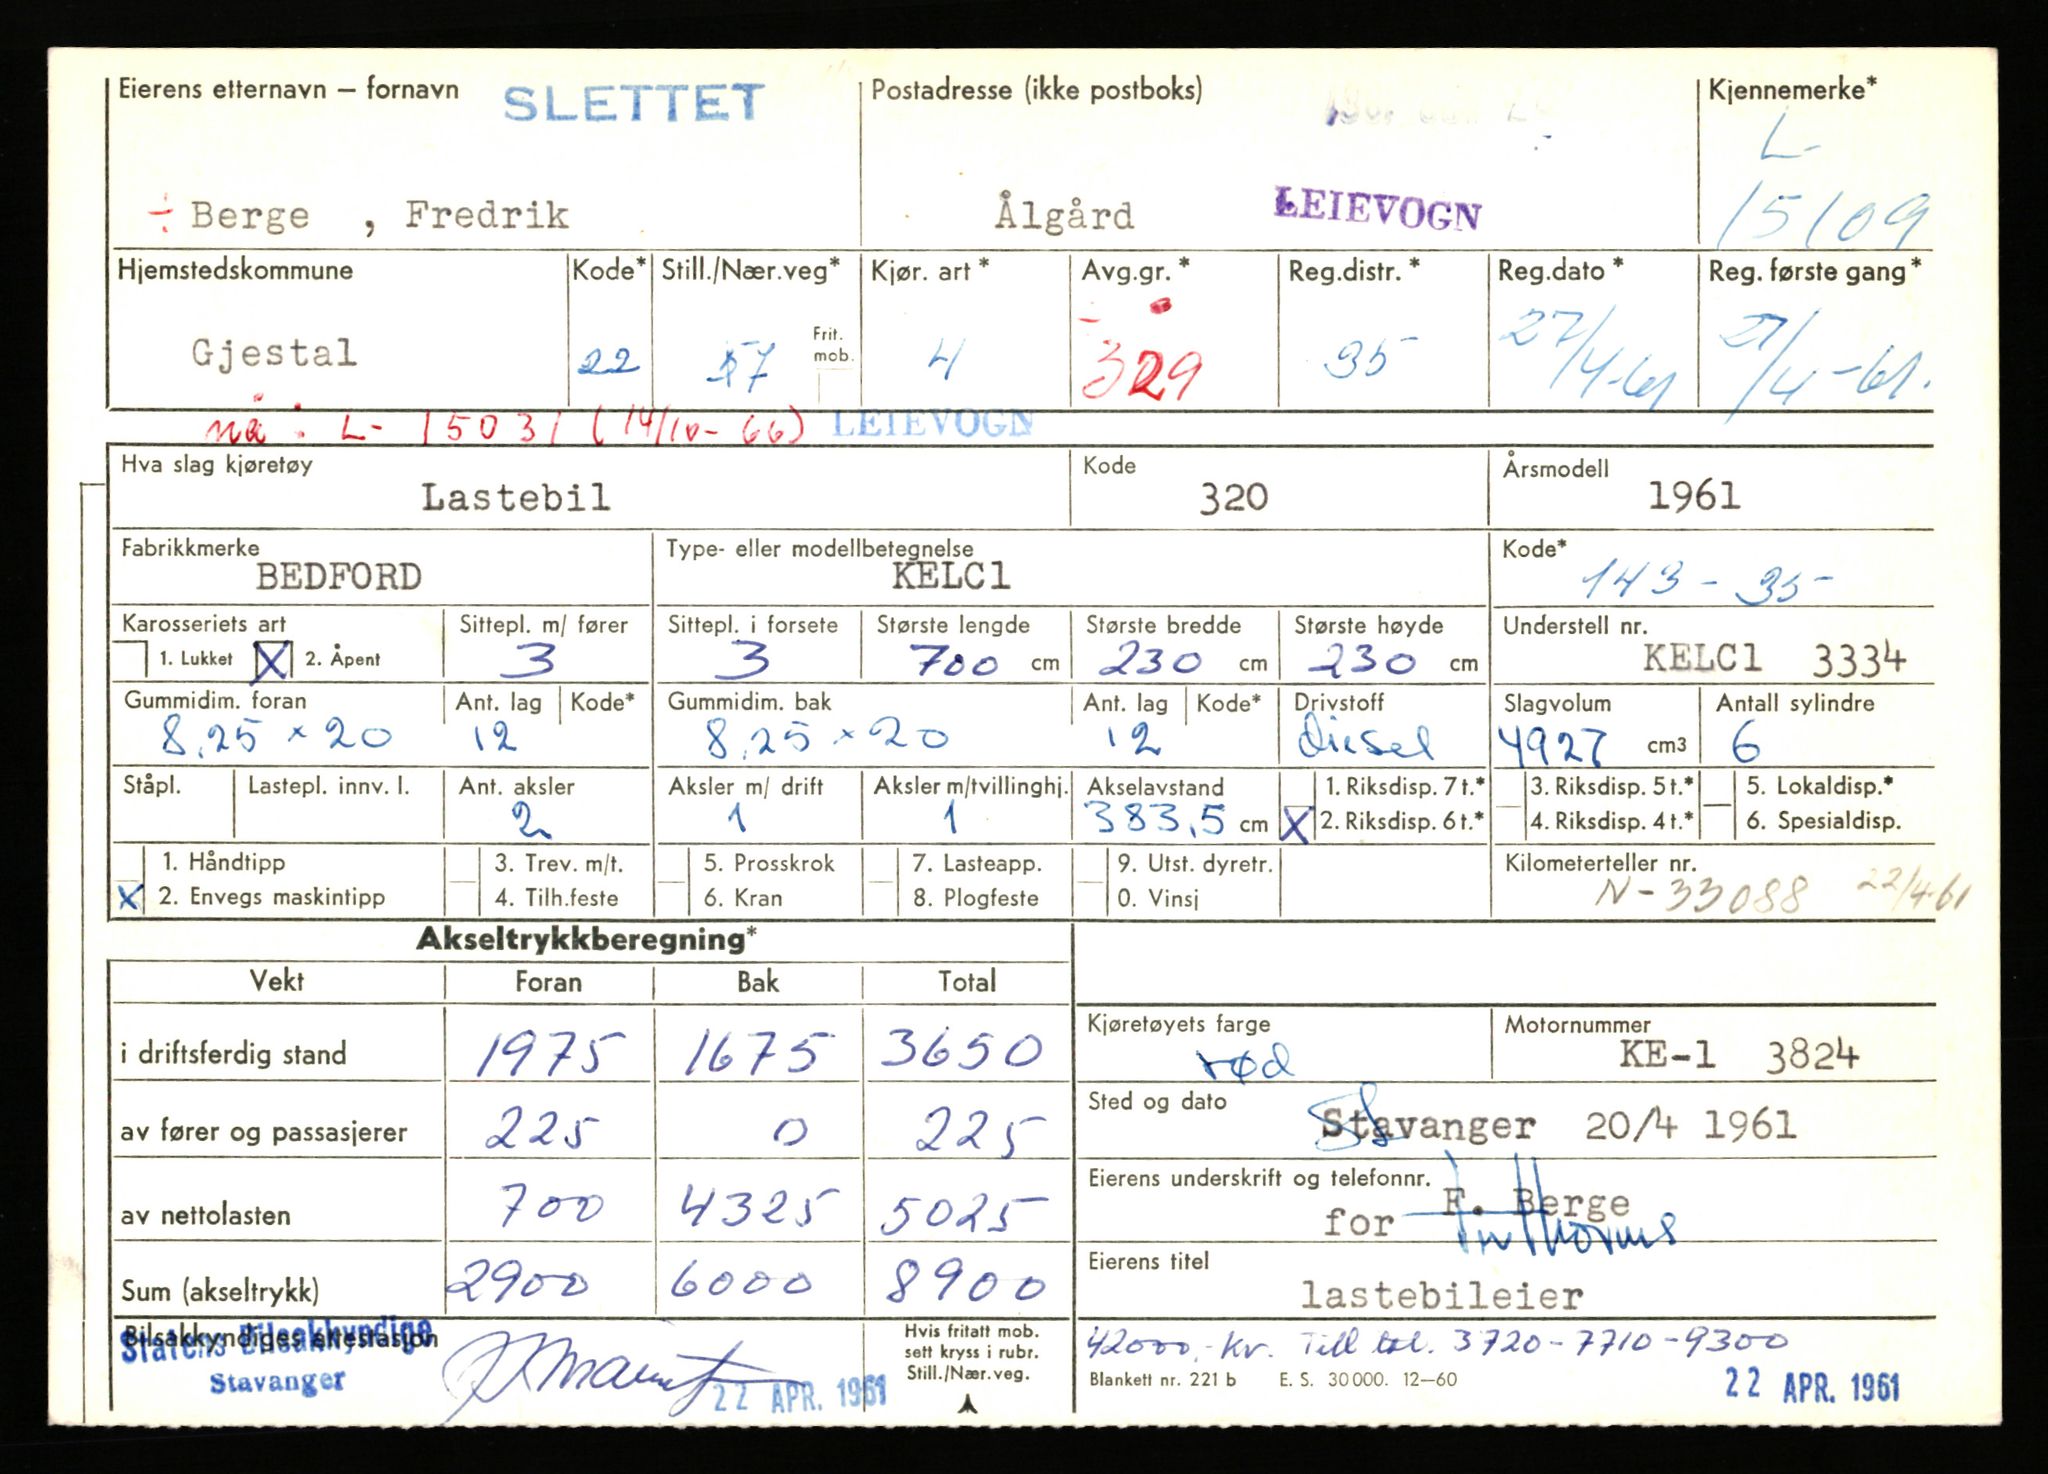 Eierens etternavn – fornavn SLETTET Postadresse (ikke postboks) Kjennemerke*
L-
÷ Berge , Fredrik Ålgård LEIEVOGN 15109
Hjemstedskommune Kode* Still./Nær.veg* Kjør. art * Avg.gr. * Reg.distr. * Reg.dato * Reg. første gang *
Gjestal 22 57 Frit. mob. 4 329 35 27/4-61 27/4-61.
nå: L- 15031 (14/10-66) LEIEVOGN
Hva slag kjøretøy Kode Årsmodell
Lastebil 320 1961
Fabrikkmerke Type- eller modellbetegnelse Kode*
BEDFORD KELC1 143-35-
Karosseriets art Sittepl. m/ fører Sittepl. i forsete Største lengde Største bredde Største høyde Understell nr.
1. Lukket X 2. Åpent 3 3 700 cm 230 cm 230 cm KELC1 3334
Gummidim. foran Ant. lag Kode* Gummidim. bak Ant. lag Kode* Drivstoff Slagvolum Antall sylindre
8.25 × 20 12 8.25 × 20 12 diesel 4927 cm3 6
Ståpl. Lastepl. innv. l. Ant. aksler Aksler m/ drift Aksler m/tvillinghj. Akselavstand 1. Riksdisp. 7 t.* 3. Riksdisp. 5 t.* 5. Lokaldisp.*
2 1 1 383,5 cm X 2. Riksdisp. 6 t.* 4. Riksdisp. 4 t.* 6. Spesialdisp.
1. Håndtipp 3. Trev. m/t. 5. Prosskrok 7. Lasteapp. 9. Utst. dyretr. Kilometerteller nr.
X 2. Envegs maskintipp 4. Tilh.feste 6. Kran 8. Plogfeste 0. Vinsj N-33088 22/4-61
Akseltrykkberegning*
Vekt Foran Bak Total
i driftsferdig stand 1975 1675 3650
Kjøretøyets farge Motornummer
rød KE-1 3824
av fører og passasjerer 225 0 225
Sted og dato
Stavanger 20/4 1961
av nettolasten 700 4325 5025
Eierens underskrift og telefonnr.
F. Berge
for
Sum (akseltrykk) 2900 6000 8900
Eierens titel
lastebileier
Bilsakkyndiges attestasjon
Statens Bilsakkyndige
Stavanger
22 APR. 1961
Hvis fritatt mob.
sett kryss i rubr.
Still./Nær.veg.
42000,- Kr. Till tol. 3720-7710-9300
Blankett nr. 221 b E. S. 30 000. 12–60 22 APR. 1961